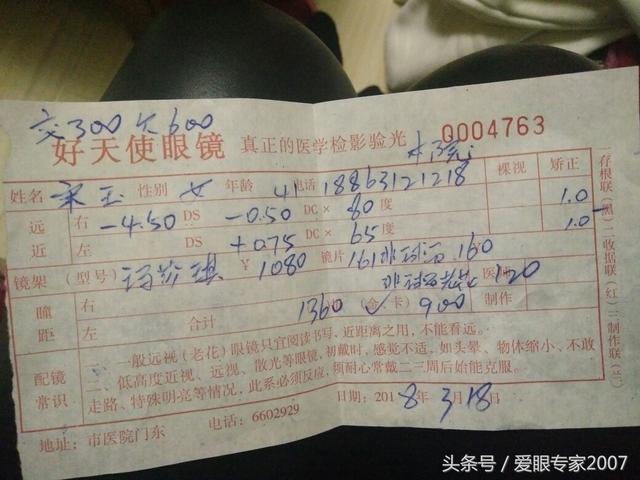 交300欠600
好天使眼镜 真正的医学检影验光 Q004763
姓名 宋玉 性别 女 年龄 41 电话 18863121218 裸视 矫正
远 右 -4.50 DS -0.50 DC× 80 度 1.0
近 左 DS +0.75 DC× 65 度 1.0
镜架 (型号) ¥ 1080 镜片 161非球面 160
非球面 医师 120
瞳 右
距 左 合计 1360 (金卡) 900 制作
配镜常识
一般远视(老花)眼镜只宜阅读书写、近距离之用,不能看远。
二、低高度近视、远视、散光等眼镜,初戴时,感觉不适,如头晕、物体缩小、不敢
走路、特殊明亮等情况,此系必须反应,须耐心常戴二三周后始能克服。
地址:市医院门东 电话:6602929 日期:2018年3月18日
一存根联(黑)二收据联(红)三制作联(兰)
头条号/爱眼专家2007